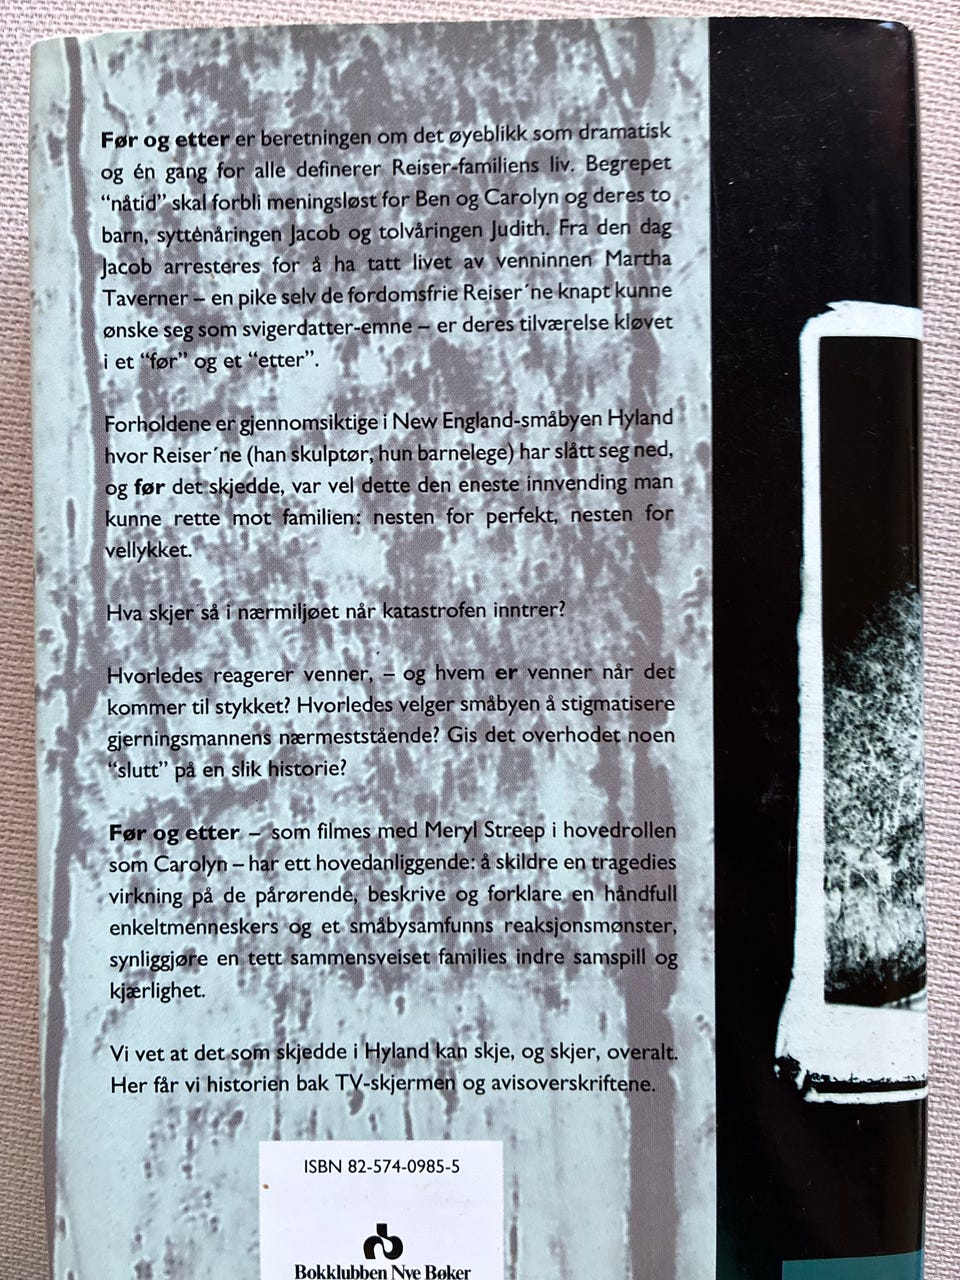 Før og etter er beretningen om det øyeblikk som dramatisk
og én gang for alle definerer Reiser-familiens liv. Begrepet
“nåtid” skal forbli meningsløst for Ben og Carolyn og deres to
barn, syttenåringen Jacob og tolvåringen Judith. Fra den dag
Jacob arresteres for å ha tatt livet av venninnen Martha
Taverner – en pike selv de fordomsfrie Reiser´ne knapt kunne
ønske seg som svigerdatter-emne – er deres tilværelse kløvet
i et “før” og et “etter”.
Forholdene er gjennomsiktige i New England-småbyen Hyland
hvor Reiser´ne (han skulptør, hun barnelege) har slått seg ned,
og før det skjedde, var vel dette den eneste innvending man
kunne rette mot familien: nesten for perfekt, nesten for
vellykket.
Hva skjer så i nærmiljøet når katastrofen inntrer?
Hvorledes reagerer venner, – og hvem er venner når det
kommer til stykket? Hvorledes velger småbyen å stigmatisere
gjerningsmannens nærmeststående? Gis det overhodet noen
“slutt” på en slik historie?
Før og etter – som filmes med Meryl Streep i hovedrollen
som Carolyn – har ett hovedanliggende: å skildre en tragedies
virkning på de pårørende, beskrive og forklare en håndfull
enkeltmenneskers og et småbysamfunns reaksjonsmønster,
synliggjøre en tett sammensveiset families indre samspill og
kjærlighet.
Vi vet at det som skjedde i Hyland kan skje, og skjer, overalt.
Her får vi historien bak TV-skjermen og avisoverskriftene.
ISBN 82-574-0985-5
Bokklubben Nye Bøker